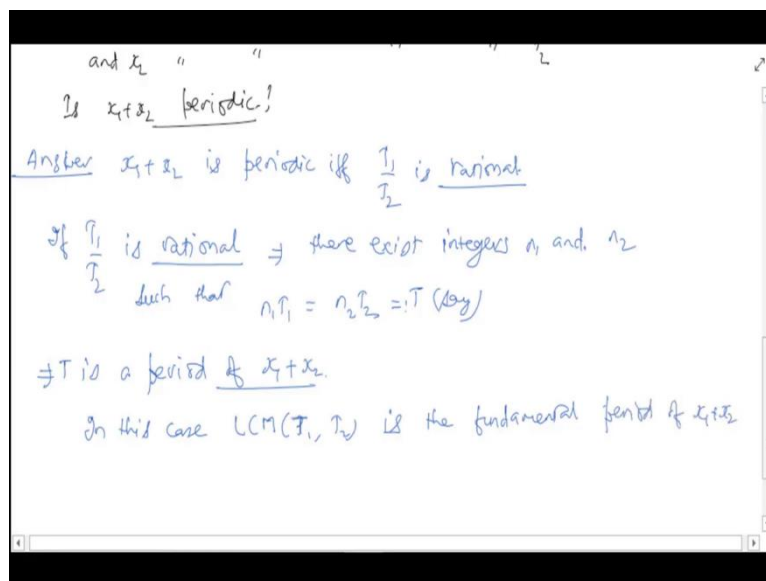 and x₂ " " " 2
Is x₁+x₂ periodic?
Answer x₁+x₂ is periodic iff T₁/T₂ is rational
If T₁/T₂ is rational ⇒ there exist integers n₁ and n₂
such that n₁T₁ = n₂T₂ =: T (say)
⇒ T is a period of x₁+x₂.
In this case LCM(T₁, T₂) is the fundamental period of x₁+x₂